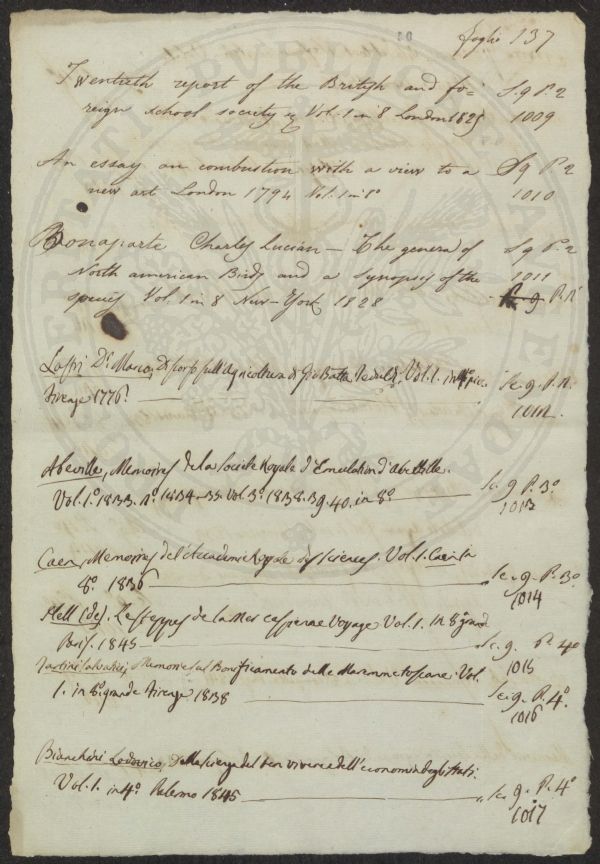 foglio 137
Twentieth report of the British and fo= S. 9 P. 2
reign school society & Vol. 1 in 8 London 1825 1009
An essay on combustion with a view to a S. 9 P. 2
new art London 1794 Vol. 1 in 8° 1010
Bonaparte Charles Lucian — The genera of S. 9 P. 2
North american Birds and a Synopsis of the 1011
species Vol. 1 in 8 New-York 1828
Lastri D. Marco, Discorso sull'Agricoltura di Gio Batta Vol. 1. in
Firenze 1776. 1012.
Abeville, Memoires de la Societé Royale d'Emulation d'Abeville. Sc. 9 P. 3°
Vol. 1° 1833. 2° 1834-35. Vol. 3° 1838.39.40. in 8° 1013
Caen, Memoires del'Accademie Royale des sciences. Vol. 1. Caen in Sc. 9. P. 3°
8° 1836 1014
Hell (de). Les steppes de la Mer caspienne Voyage Vol. 1. in 8° grand
Paris. 1845 Sc. 9. P. 4°
1015
Tartini Salvatici, Memorie sul Bonificamento delle Maremme toscane Vol.
1. in 8° grande Firenze 1838 Sc. 9. P. 4°.
1016
Bianchini Lodovico, Della scienza del ben vivere e dell'economia degli stati.
Vol. 1. in 4° Palermo 1845 Sc. 9. P. 4°
1017